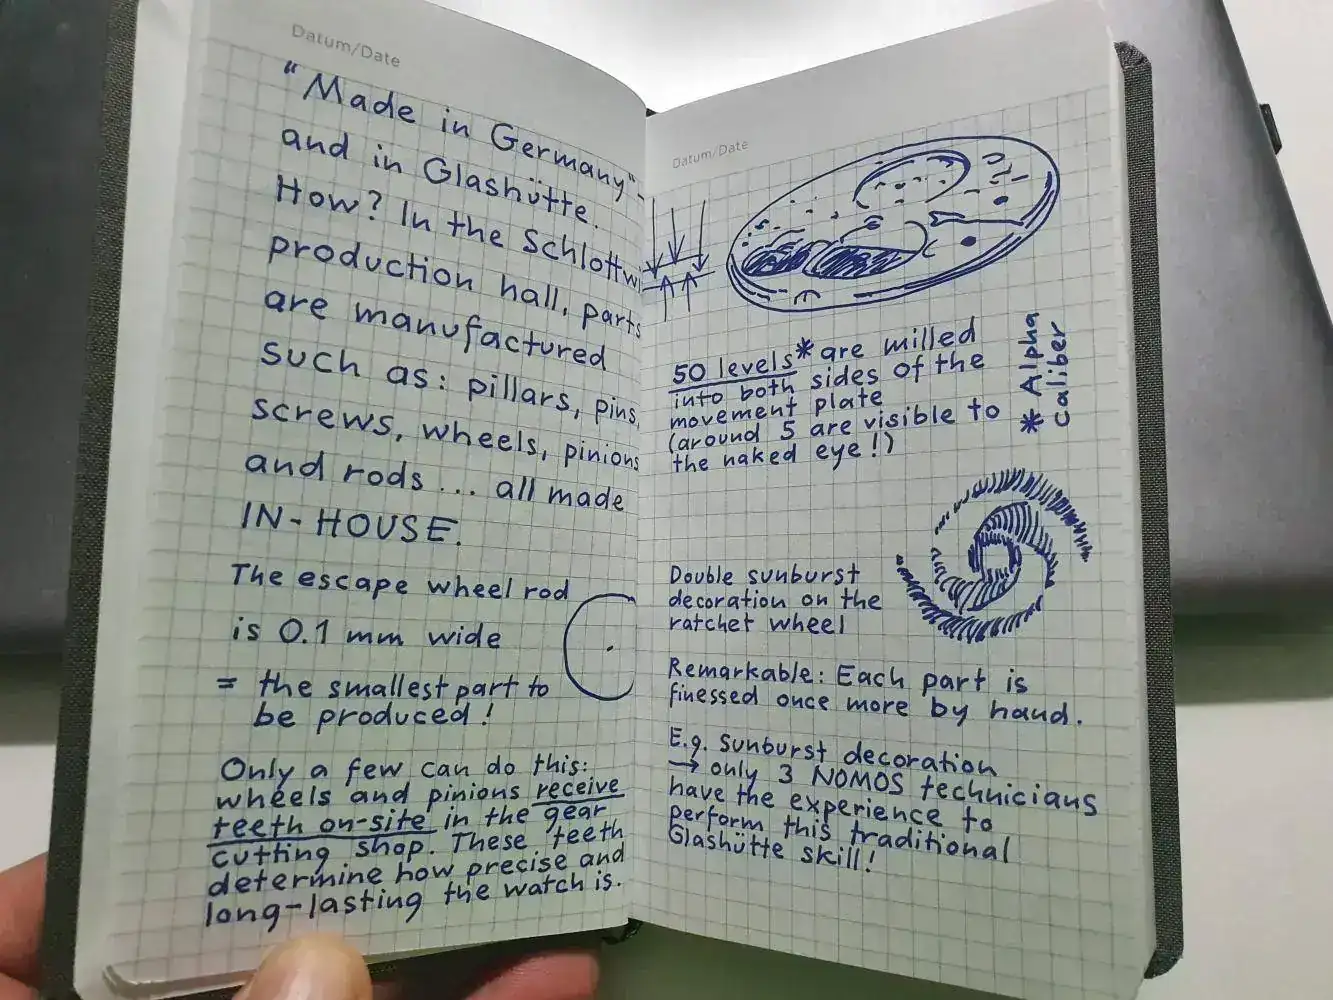 Datum/Date
"Made in Germany" -
and in Glashütte.
How? In the Schlottwi
production hall, parts
are manufactured
such as: pillars, pins,
screws, wheels, pinions
and rods ... all made
IN-HOUSE.
The escape wheel rod
is 0.1 mm wide
= the smallest part to
be produced!
Only a few can do this:
wheels and pinions receive
teeth on-site in the gear
cutting shop. These teeth
determine how precise and
long-lasting the watch is.
Datum/Date
50 levels* are milled
into both sides of the
movement plate
(around 5 are visible to
the naked eye!)
* Alpha
caliber
Double sunburst
decoration on the
ratchet wheel
Remarkable: Each part is
finessed once more by hand.
E.g. sunburst decoration
→ only 3 NOMOS technicians
have the experience to
perform this traditional
Glashütte skill!